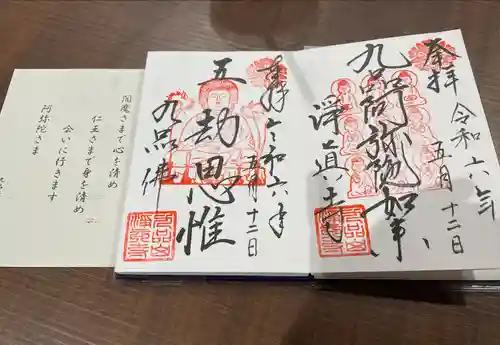 奉拝
令和六年
五月十二日
九品阿弥陀如来
浄真寺
奉拝
令和六年
五月十二日
五劫思惟
九品佛
閻魔さまで心を清め
仁王さまで身を清め
会いに行きます
阿弥陀さま